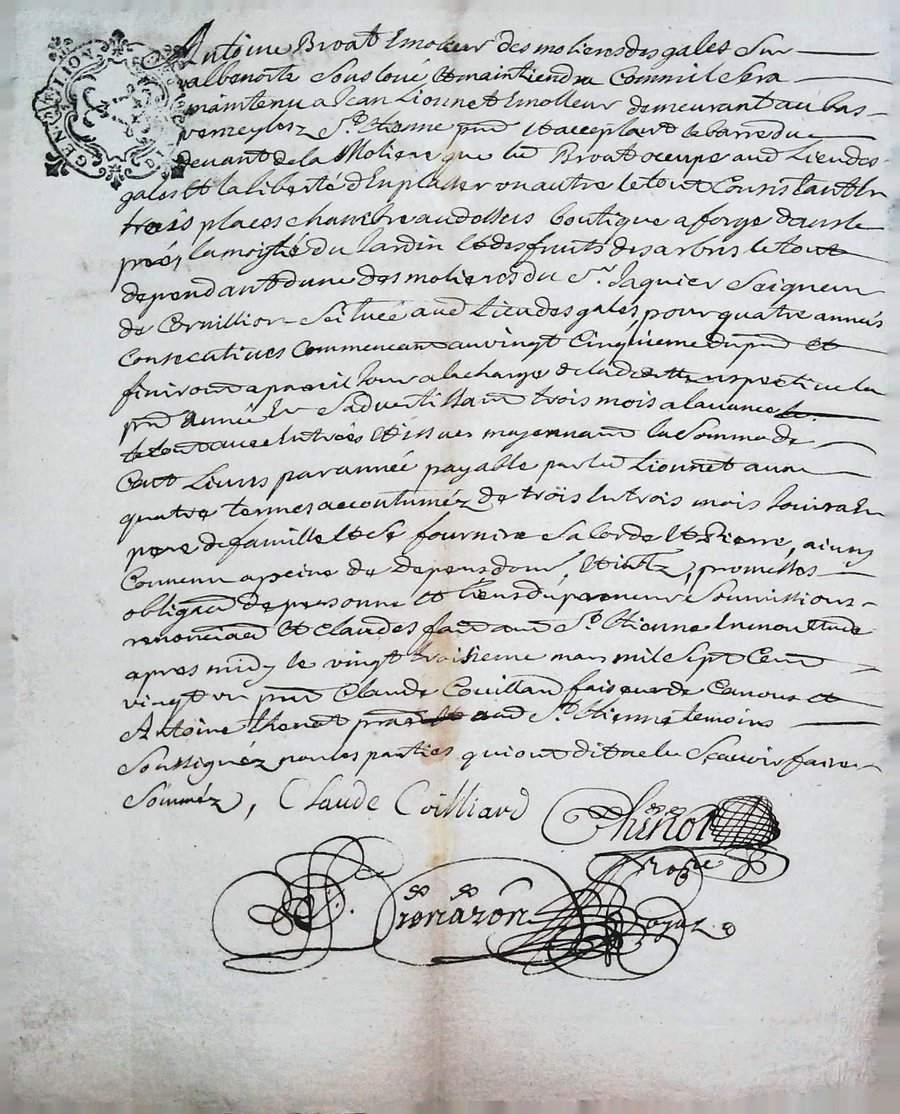 GEN. DE LION
Antoine Broat Emoleur des moliers des gales Sur
valbenoite Sousloué et maintiendra Comm il Sera
maintenu a Jean Lionnet Emolleur demeurant au bas
St. Etienne pnt et acceptant le barre du
devant de la Moliere que led Broat occupe aud Lieu des
gales et la liberté d'En placer un autre le tout Consistant En
trois places chambre au dessus boutique a forge dans le
prés la moytié du Jardin et des fruits des arbres le tout
dependant d'une des molieres du Sr. Jaquier Seigneur
de Cornillion Scituée aud Lieu des gales, pour quatre années
Consecutives Commencant au vingt Cinquieme du pnt et
finiront a pareil Jour a la charge de respective la
pnt Année En S'advertissant trois mois a l'avance
le tout avec Entrées et issues moyennant la Somme de
Cent Livres par année payable par led Lionnet aux
quatre termes accoutuméz de trois En trois mois Jouira En
pere de famille et Se fournira Sa Corde et Pierre, ainsy
Convenu a peine de depens dom. et intz, promettes
obligaon de personne et biens du preneur Soumissions
renonciaon et Clauses fait aud St. Etienne En
apres midy le vingt troisieme mars mil Sept Cent
vingt un pnt Claude Couillard faiseur de Canons et
Antoine thenot aud St. Etienne temoins
Soussignéz non les parties qui ont dit ne le Scavoir faire
Somméz, Claude Coilliard Thenot
Tronazon